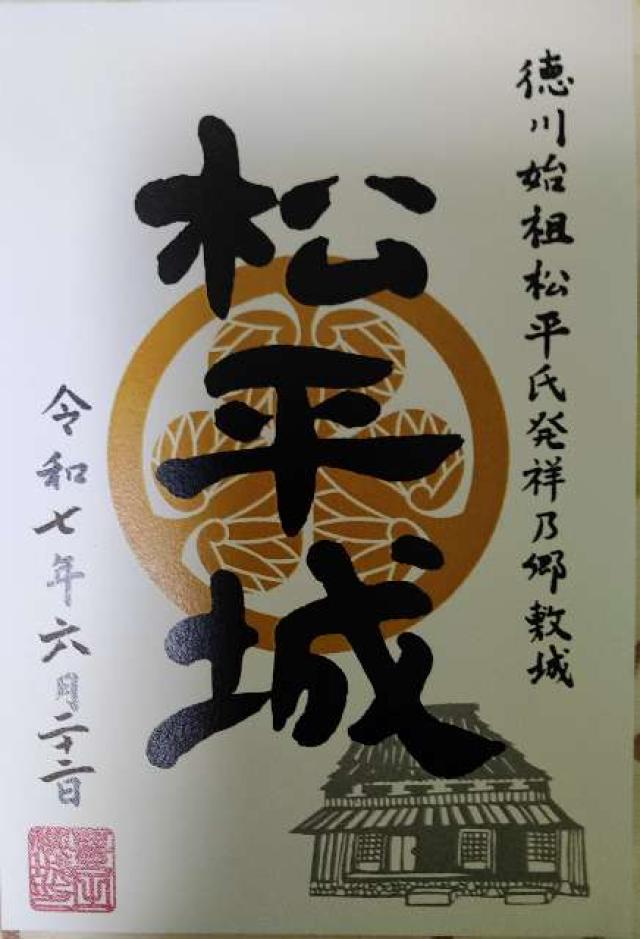 徳川始祖松平氏発祥乃郷敷城
松平城
令和七年六月二十二日